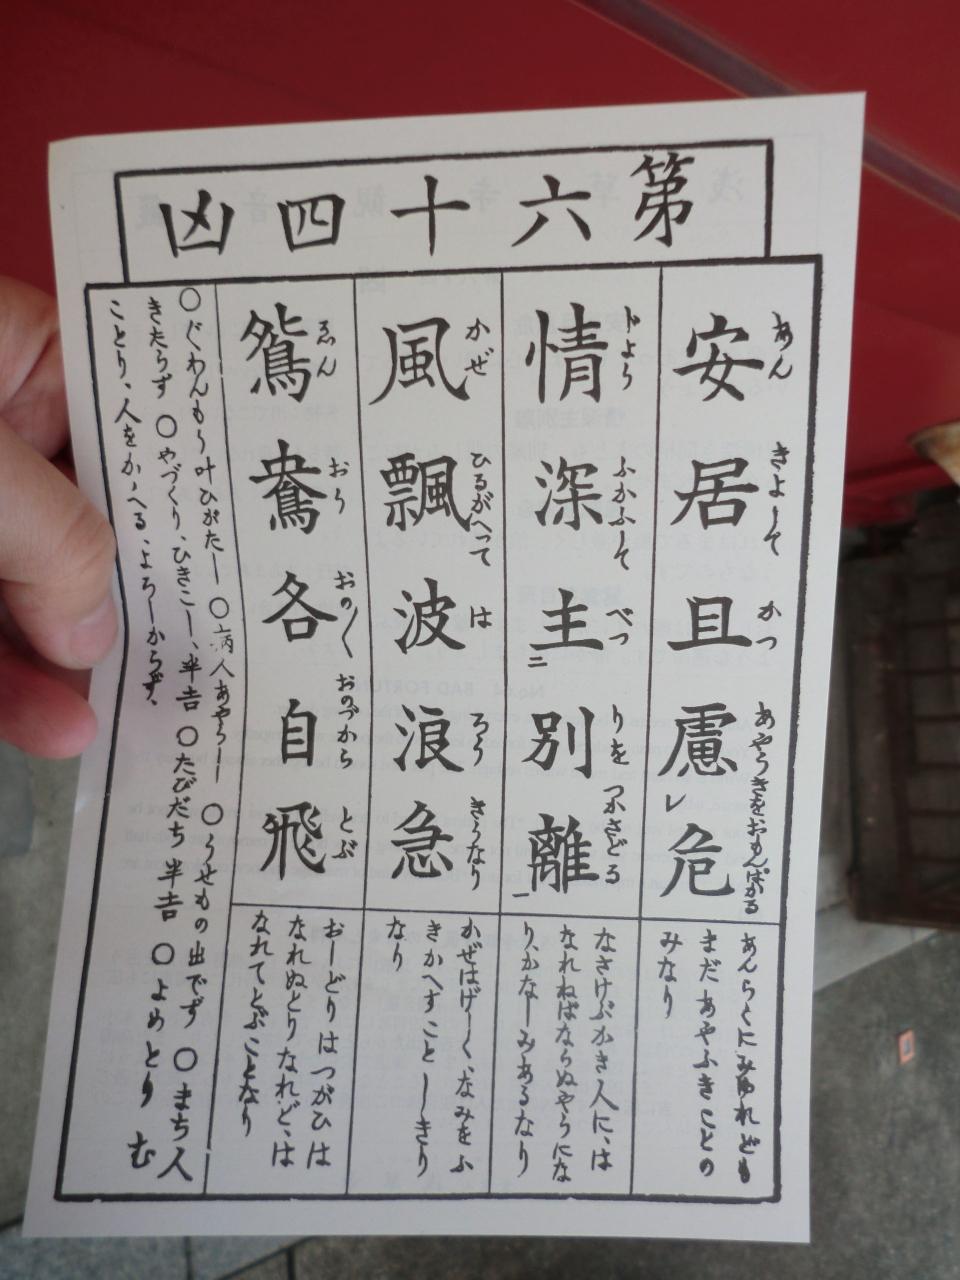 第六十四凶
安居且慮レ危
あん きよして かつ あやうきをおもんぱかる
あんらくにみゆれども
まだあやふきことの
みなり
情深主二別離一
じよう ふかふして べつ りを つかさどる
なさけぶかき人に、は
なれねばならぬやうにな
り、かなしみあるなり
風飄波浪急
かぜ ひるがへって は ろう きうなり
かぜはげしく、なみをふ
きかへすことしきり
なり
鴛鴦各自飛
ゑん おう おの〳〵 おのづから とぶ
おしどりはつがひは
なれぬとりなれど、は
なれてとぶことなり
○ぐわんもう叶ひがたし ○病人あやうし ○うせもの出でず ○まち人
きたらず ○やづくり、ひきこし、半吉 ○たびだち半吉 ○よめとり む
ことり、人をかゝへる、よろしからず、
No.64 BAD FORTUNE